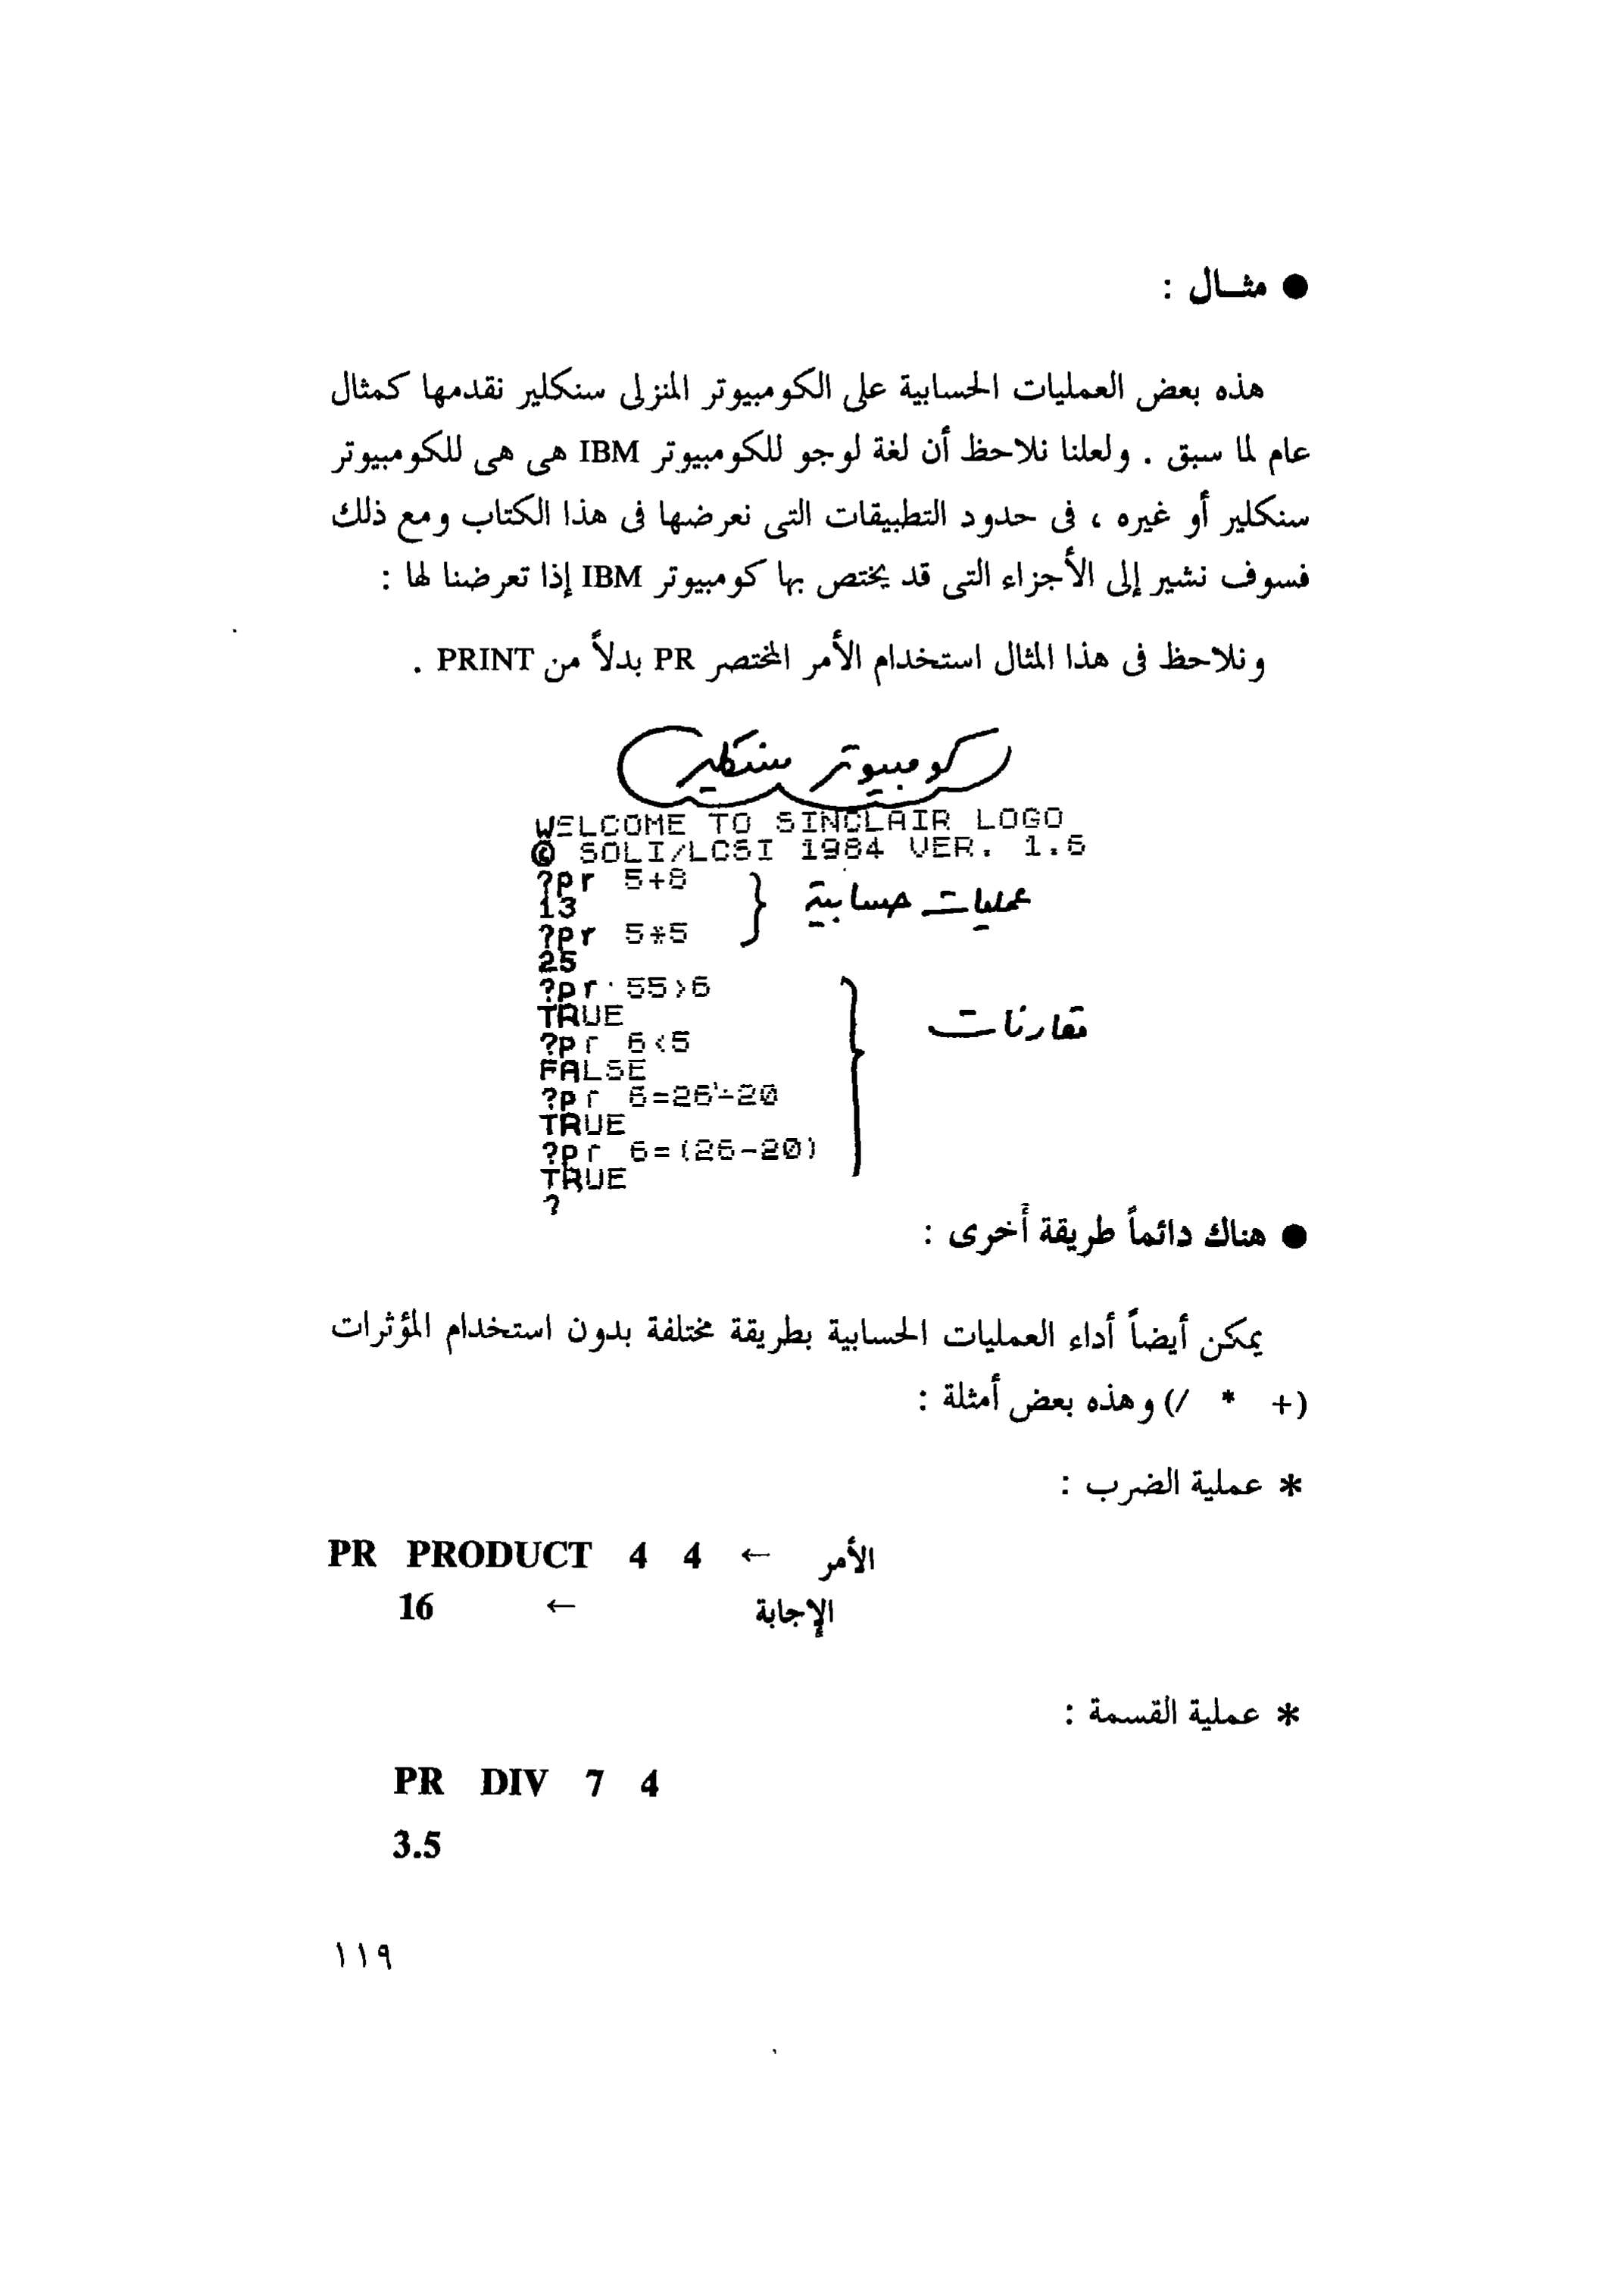 ● مثــال :
هذه بعض العمليات الحسابية على الكومبيوتر المنزلى سنكلير نقدمها كمثال
عام لما سبق . ولعلنا نلاحظ أن لغة لوجو للكومبيوتر IBM هى هى للكومبيوتر
سنكلير أو غيره ، فى حدود التطبيقات التى نعرضها فى هذا الكتاب ومع ذلك
فسوف نشير إلى الأجزاء التى قد يختص بها كومبيوتر IBM إذا تعرضنا لها :
ونلاحظ فى هذا المثال استخدام الأمر المختصر PR بدلاً من PRINT .
كومبيوتر سنكلير
WELCOME TO SINCLAIR LOGO
© SOLI/LCSI 1984 VER. 1.6
?pr 5+8
13
عمليات حسابية
?pr 5*5
25
?pr 55>6
TRUE
مقارنات
?pr 6<5
FALSE
?pr 6=26-20
TRUE
?pr 6=(26-20)
TRUE
?
● هناك دائماً طريقة أخرى :
يمكن أيضاً أداء العمليات الحسابية بطريقة مختلفة بدون استخدام المؤثرات
(+ * /) وهذه بعض أمثلة :
* عملية الضرب :
PR PRODUCT 4 4 ← الأمر
16 ← الإجابة
* عملية القسمة :
PR DIV 7 4
3.5
١١٩